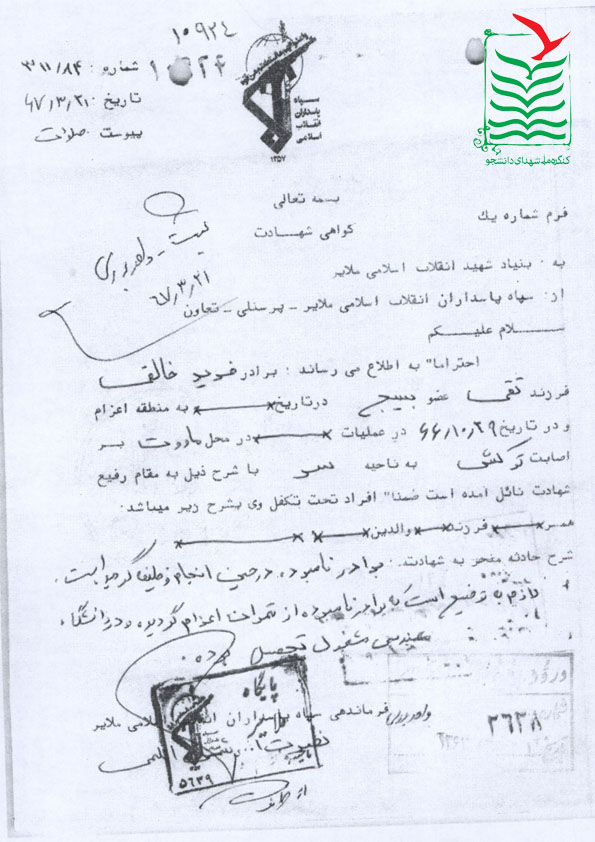 ۱۰۹۲۴
شماره : ۳۰۱۱/۸۴
تاریخ : ۶۷/۳/۲۱
پیوست
سپاه
پاسداران
انقلاب
اسلامی
۱۳۵۷
کنگره ملی شهدای دانشجو
بسمه تعالی
فرم شماره یك
گواهی شهادت
۶۷/۳/۲۱
به : بنیاد شهید انقلاب اسلامی ملایر
از: سپاه پاسداران انقلاب اسلامی ملایر - پرسنلی - تعاون
سلام علیکم
احتراما" به اطلاع می رساند : برادر فرید خالق
فرزند تقی عضو بسیج درتاریخ x x به منطقه اعزام
و در تاریخ ۶۶/۱۰/۲۹ در عملیات x x در محل ماووت بر
اصابت ترکش به ناحیه سر با شرح ذیل به مقام رفیع
شهادت نائل آمده است ضمنا" افراد تحت تکفل وی بشرح زیر میباشد:
همسر x x فرزند x x والدین x x x
شرح حادثه منجر به شهادت. برادر نامبرده در حین انجام وظیفه گردیده است.
لازم به توضیح است که برادر نامبرده از تهران اعزام گردیده و در دانشگاه
مهندسی مشغول تحصیل بوده.
پایگاه
فرماندهی سپاه پاسداران انقلاب اسلامی ملایر
۵۶۳۹
ورود
۲۶۲۸